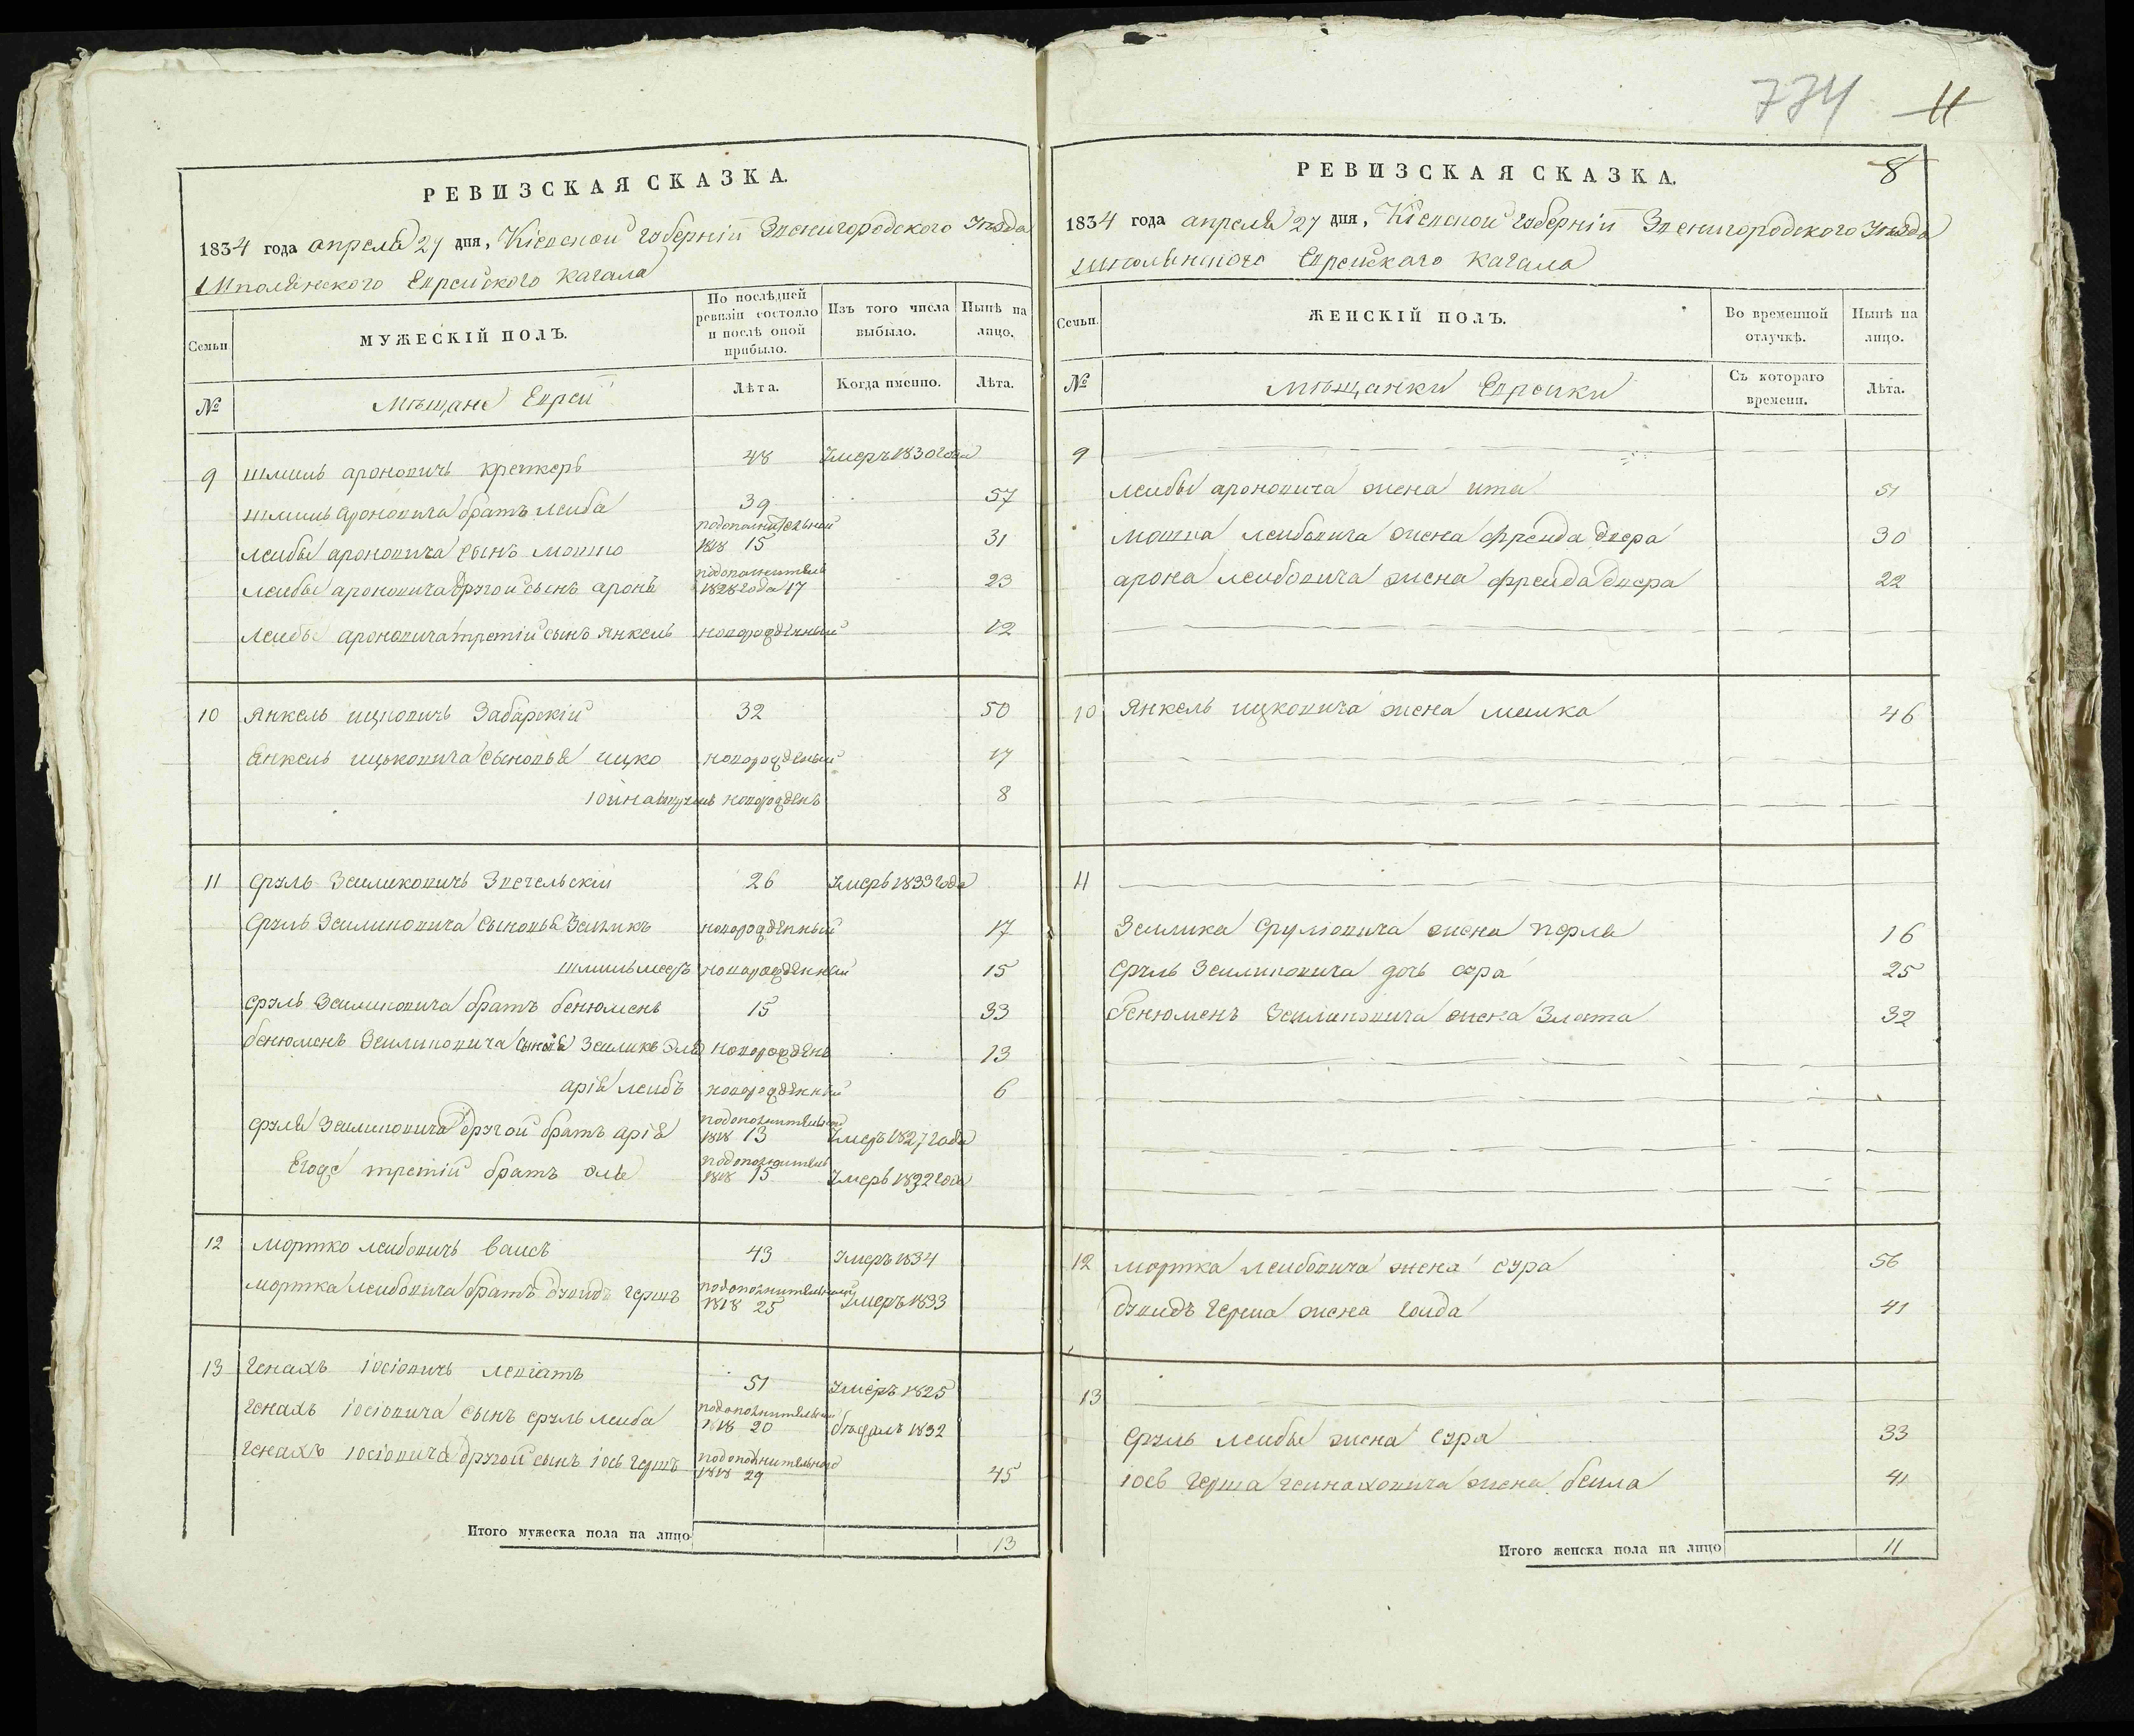 734 11
РЕВИЗСКАЯ СКАЗКА.
1834 года апреля 27 дня, Кіевской губерніи Звенигородского Уезда
Шполянского Еврейского кагала
Семьи
МУЖЕСКІЙ ПОЛЪ.
По послѣдней ревизіи состояло и послѣ оной прибыло.
Изъ того числа выбыло.
Нынѣ на лицо.
№
Мѣщане Евреи
Лѣта.
Когда имянно.
Лѣта.
9 шмиль ароновичь крейкерь 48 Умеръ 1830 года
шмиль ароновича братъ лейба 39 57
лейбы ароновича сынъ мошко подополнительной 1818 15 31
лейбы ароновича другой сынъ аронь 1828 года 17 23
лейбы ароновича третій сынъ янкель новорожденный 12
10 янкель ицковичь Забарскій 32 50
янкель ицьковича сыновья ицко новорожденый 17
іойна новорожденъ 8
11 сруль Зейликовичь Звечельскій 26 Умерь 1833 года
сруль Зейликовича сыновья Зейликъ новорожденный 17
шмиль меръ новорожденный 15
сруль Зейликовича братъ бенюмень 15 33
бенюменъ Зейликовича сыновья Зейликъ эля новорожденъ 13
арія лейбъ новорожденный 6
сруля Зейликовича другой братъ арія подополнительной 1818 13 Умеръ 1827 года
Егоже третій братъ эля 1818 15 Умерь 1832 года
12 мортко лейбовичь ваисъ 43 Умеръ 1834
мортка лейбовича братъ дувидъ гершъ подополнительной 1818 25 Умеръ 1833
13 генахъ іосіовичь левіатъ 51 Умеръ 1825
генахъ іосіовича сынъ сруль лейба подополнительной 1818 20 бежалъ 1832
генахъ іосіовича другой сынъ іось гершъ подополнительного 1818 29 45
Итого мужеска пола на лицо 13
РЕВИЗСКАЯ СКАЗКА. 8
1834 года апреля 27 дня, Кіевской губерніи Звенигородского Уезда
Шполянского Еврейскаго кагала
Семьи.
ЖЕНСКІЙ ПОЛЪ.
Во временной отлучкѣ.
Нынѣ на лицо.
№
Мѣщанки Еврейки
Съ котораго времени.
Лѣта.
9
лейбы ароновича жена ита 51
мошка лейбовича жена фрейда двера 30
арона лейбовича жена фрейда двера 22
10 янкель ицковича жена малка 46
11
Зейлика срулювича жена перля 16
сруль Зейликовича дочь сура 25
бенюменъ Зейликовича жена Злота 32
12 мортка лейбовича жена сура 56
дувидъ герша жена гоида 41
13
сруль лейбы жена сура 33
іось герша гейнаховича жена бейла 41
Итого женска пола на лицо 11